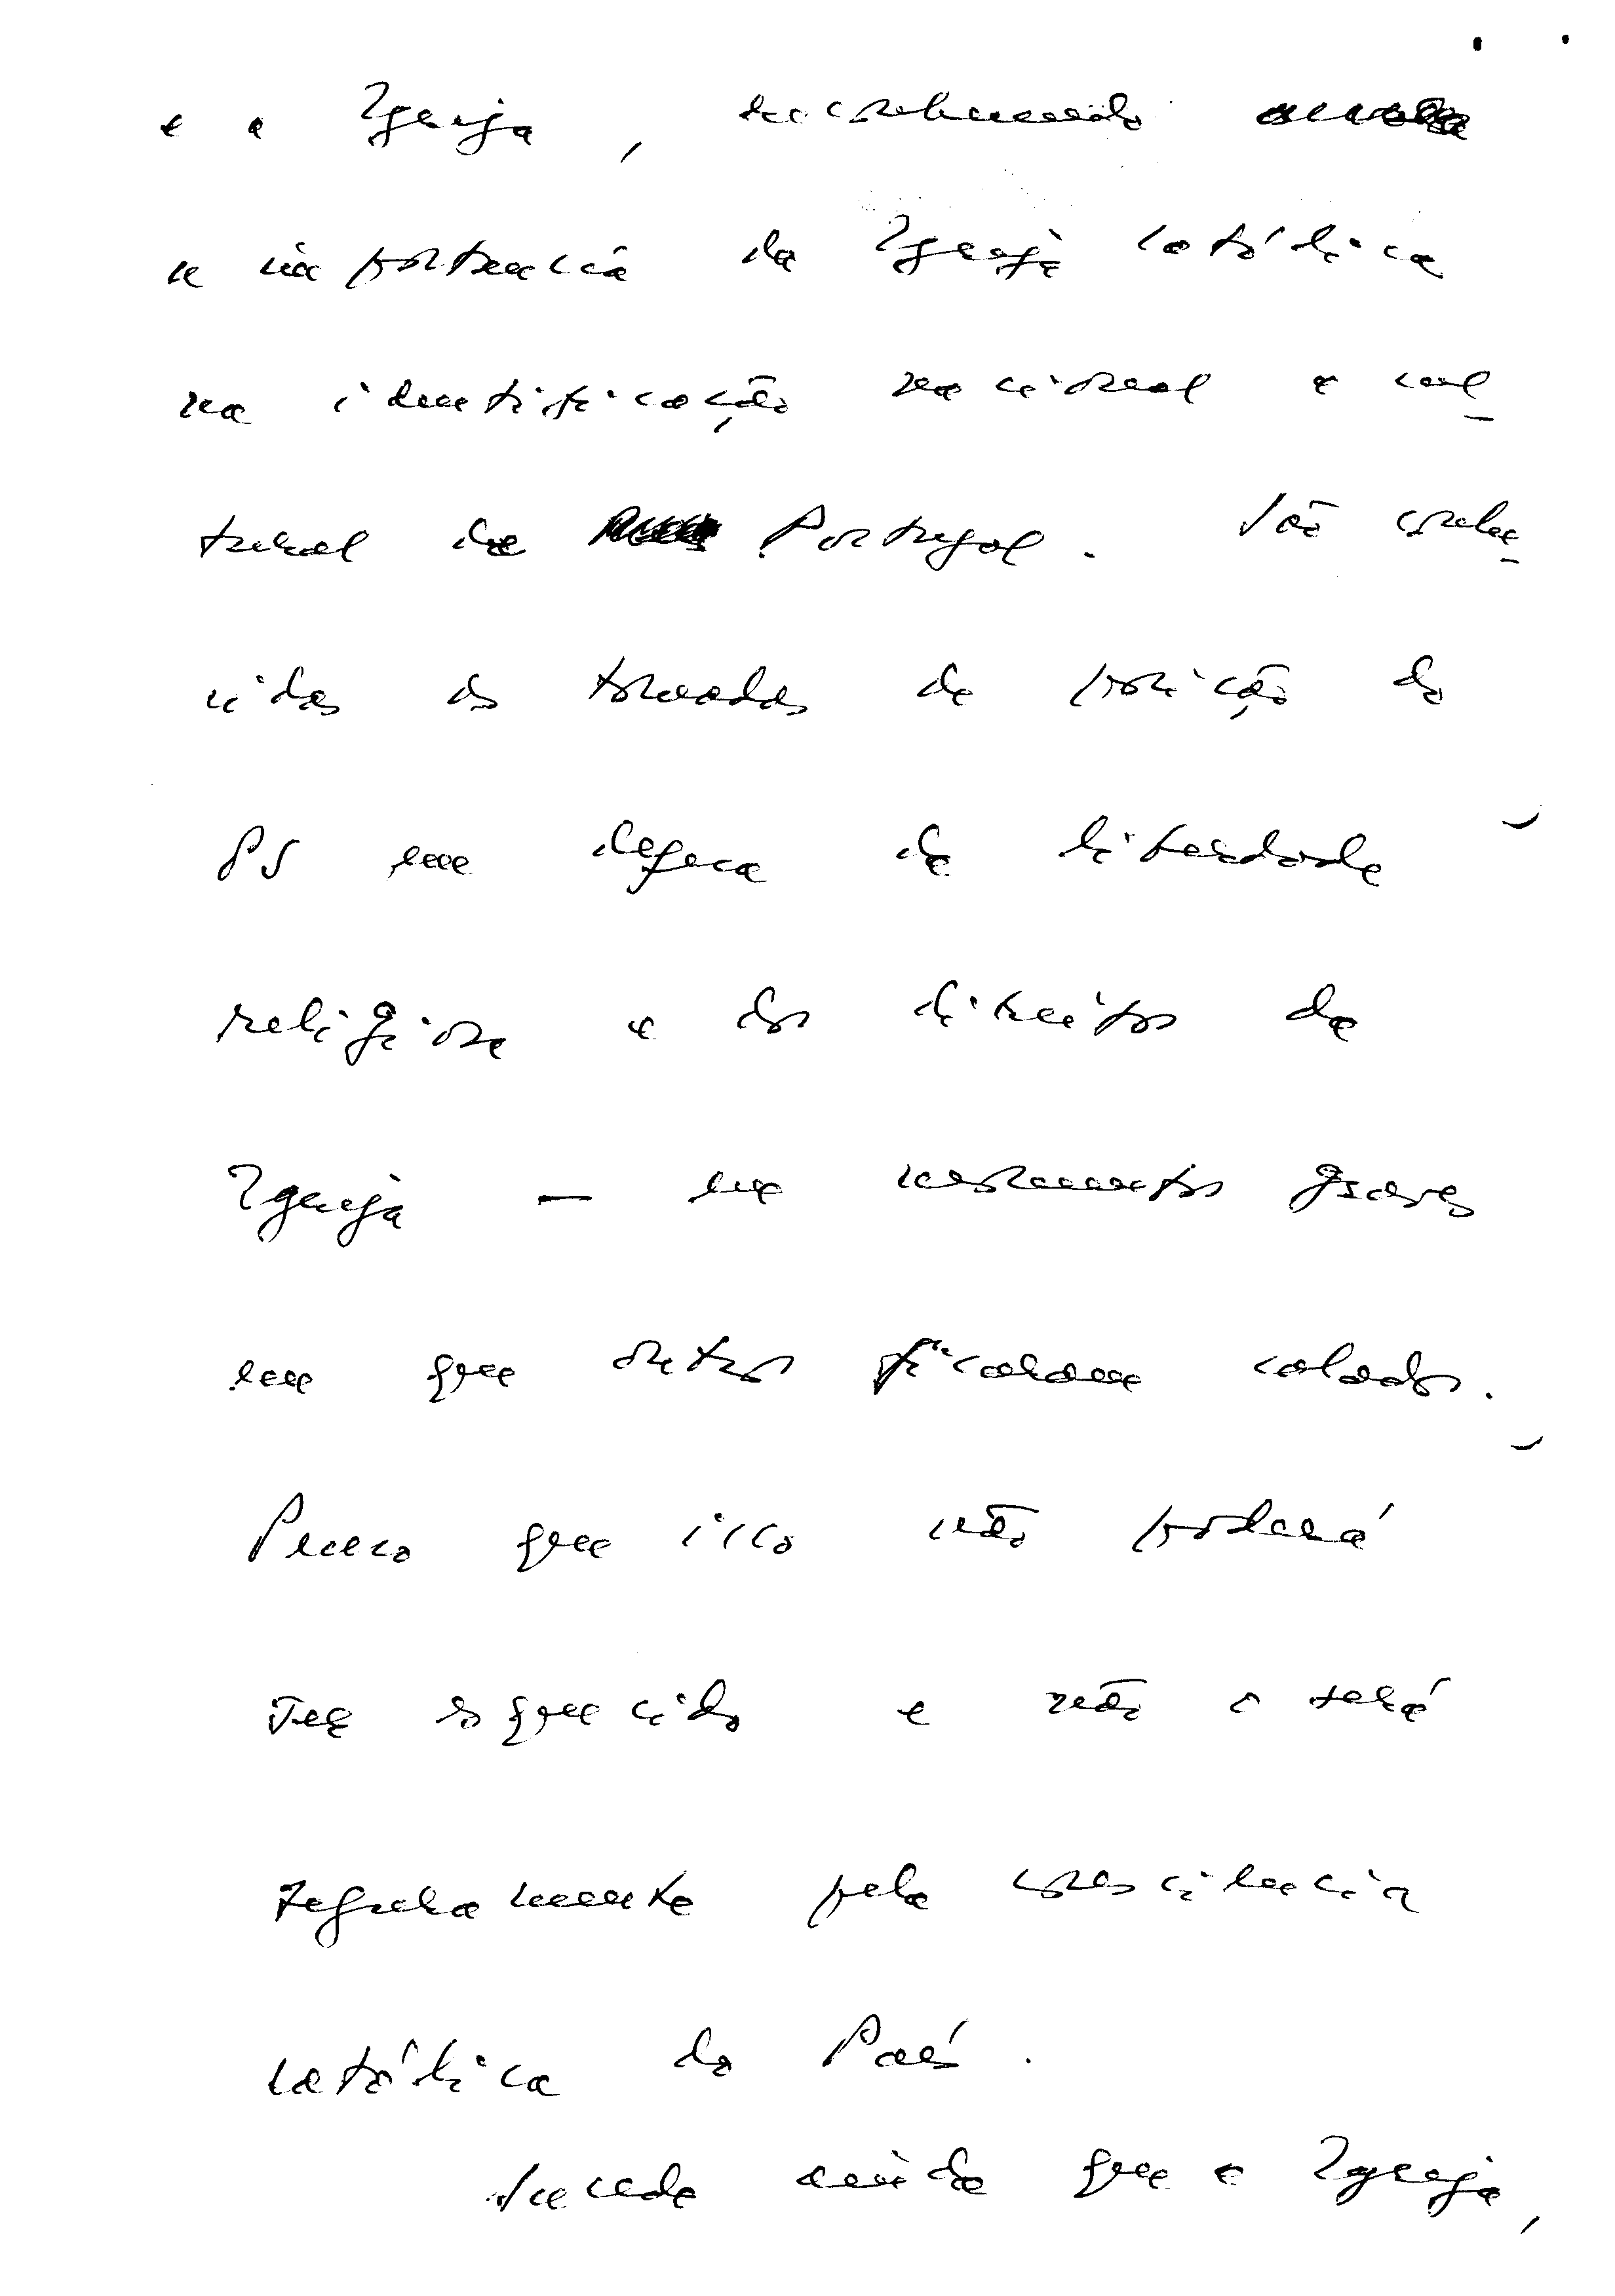 e a Igreja, reconhecendo
a importância da Igreja Católica
na identificação nacional e cul-
tural de Portugal. São conhe-
cidas as tomadas de posição do
PS em defesa da liberdade
religiosa e dos direitos da
Igreja — em momentos graves
em que outros ficaram calados.
Penso que isso não poderá
ser esquecido e não o será
seguramente pela consciência
católica do País.
Sucede ainda que a Igreja,